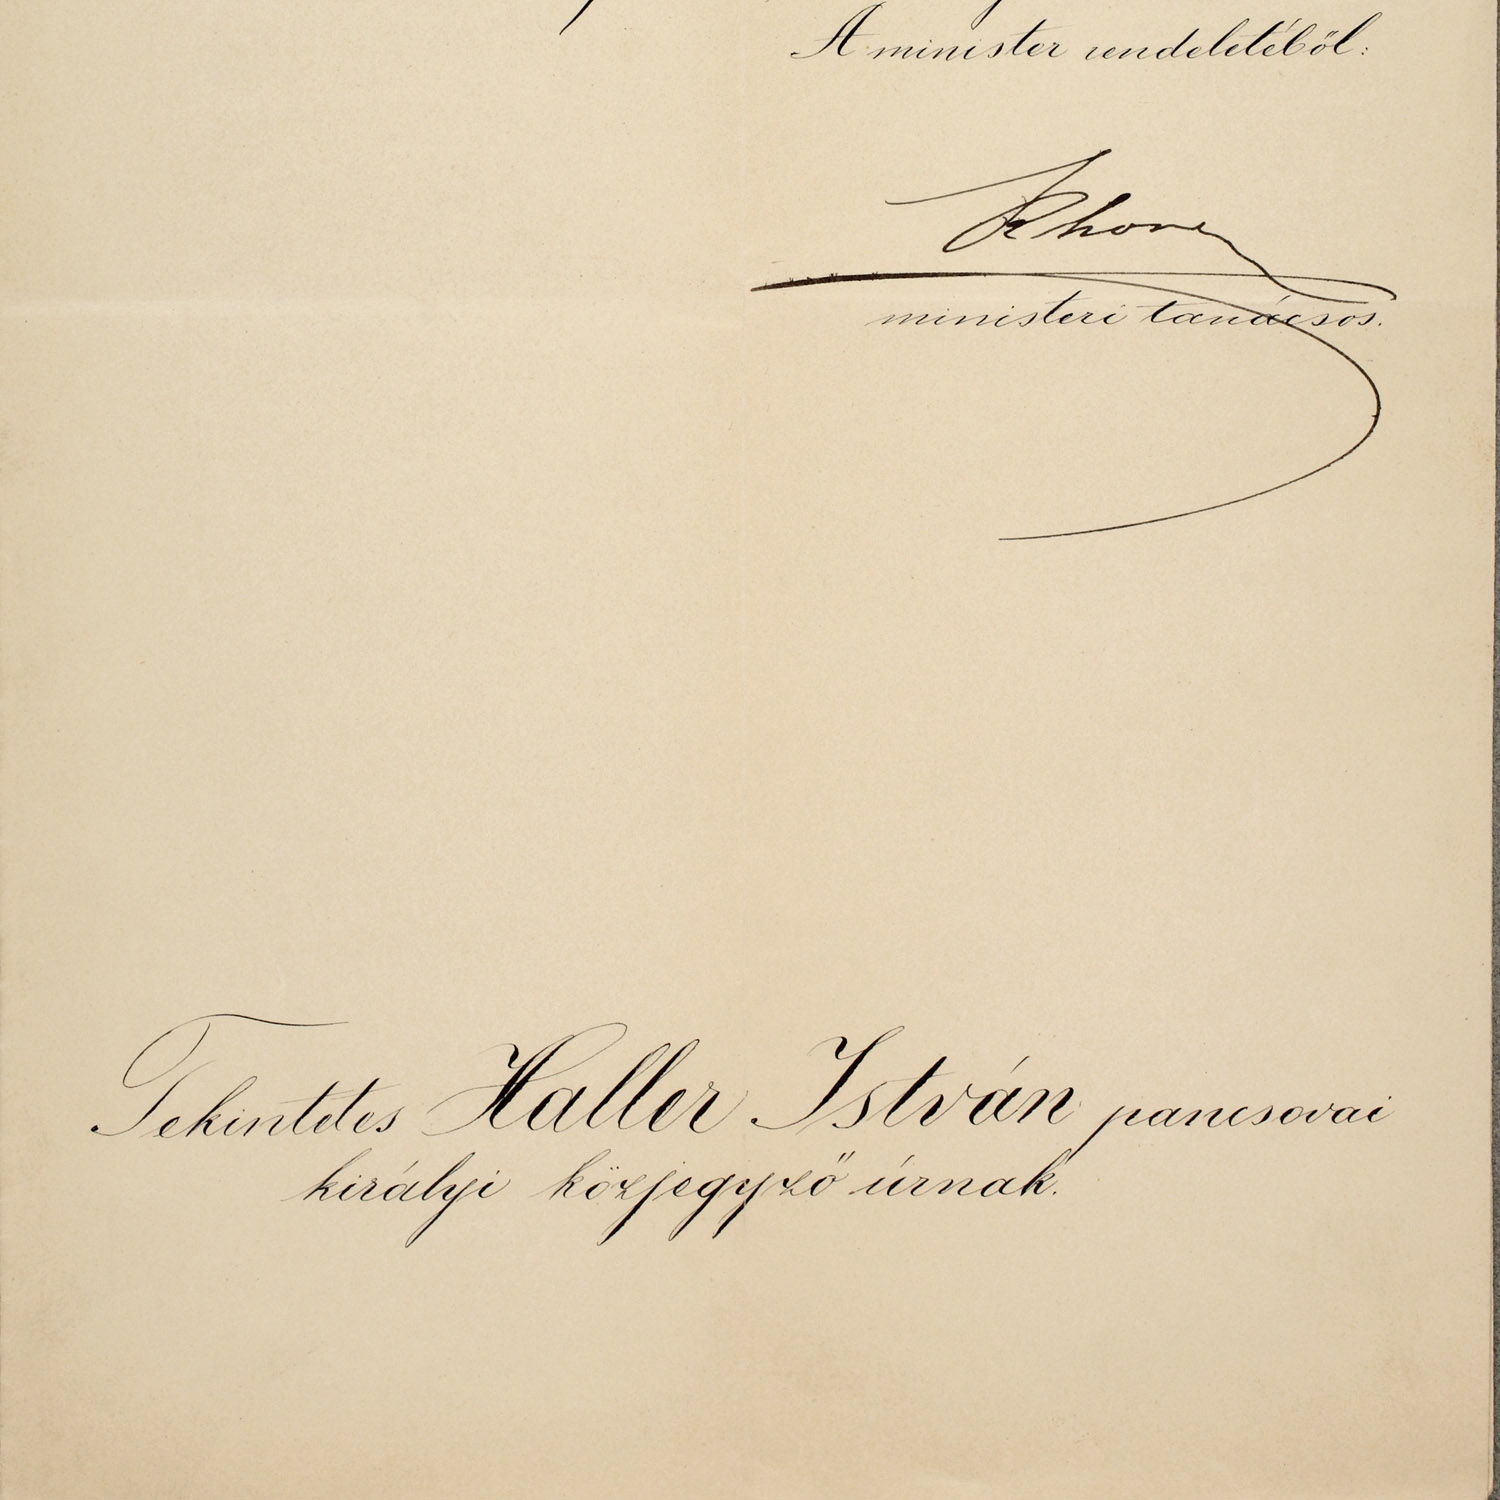 A minister rendeletéből:
ministeri tanácsos.
Tekintetes Haller István pancsovai
királyi közjegyző úrnak.